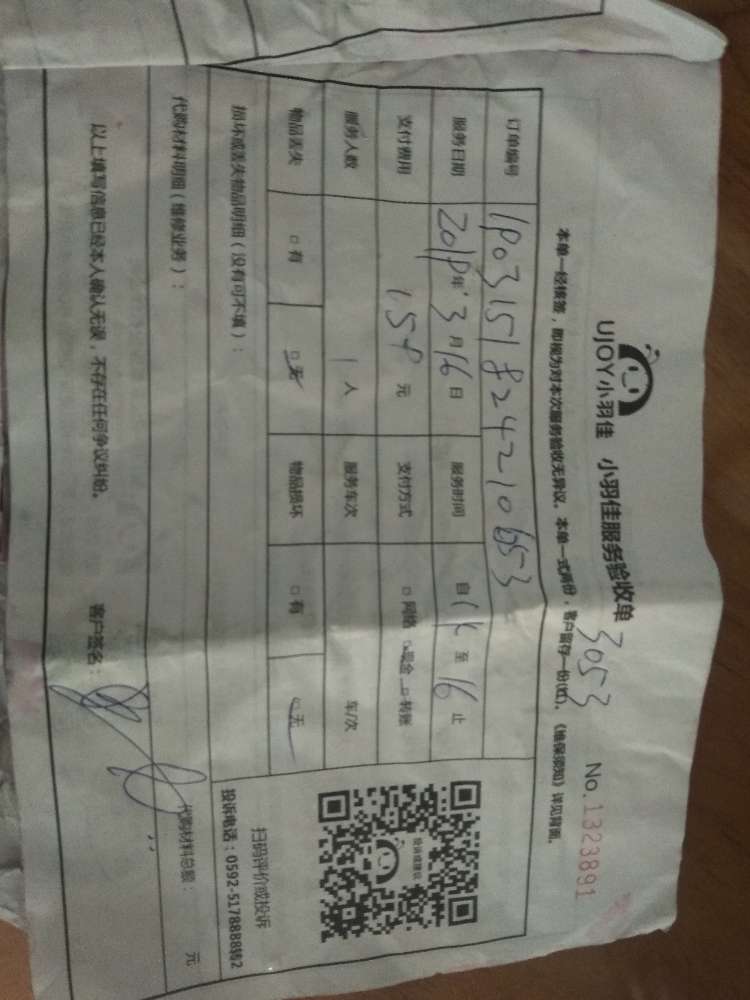 UJOY小羽佳 小羽佳服务验收单
3053
No.1323891
本单一经核签，即视为对本次服务验收无异议。本单一式两份，客户留存一份(红)。《维保须知》详见背面。
订单编号
服务日期 年 3月16日 服务时间 自 至 16 止
支付费用 元 支付方式 □网络 □现金 □转账
服务人数 1 人 服务车次 车/次
物品丢失 □有 □无 物品损坏 □有 □无
损坏或丢失物品明细（没有可不填）：
代购材料明细（维修业务）：
代购材料总额： 元
以上填写信息已经本人确认无误，不存在任何争议纠纷。 客户签名：
投诉或建议
扫码评价或投诉
投诉电话：0592-5178888转2